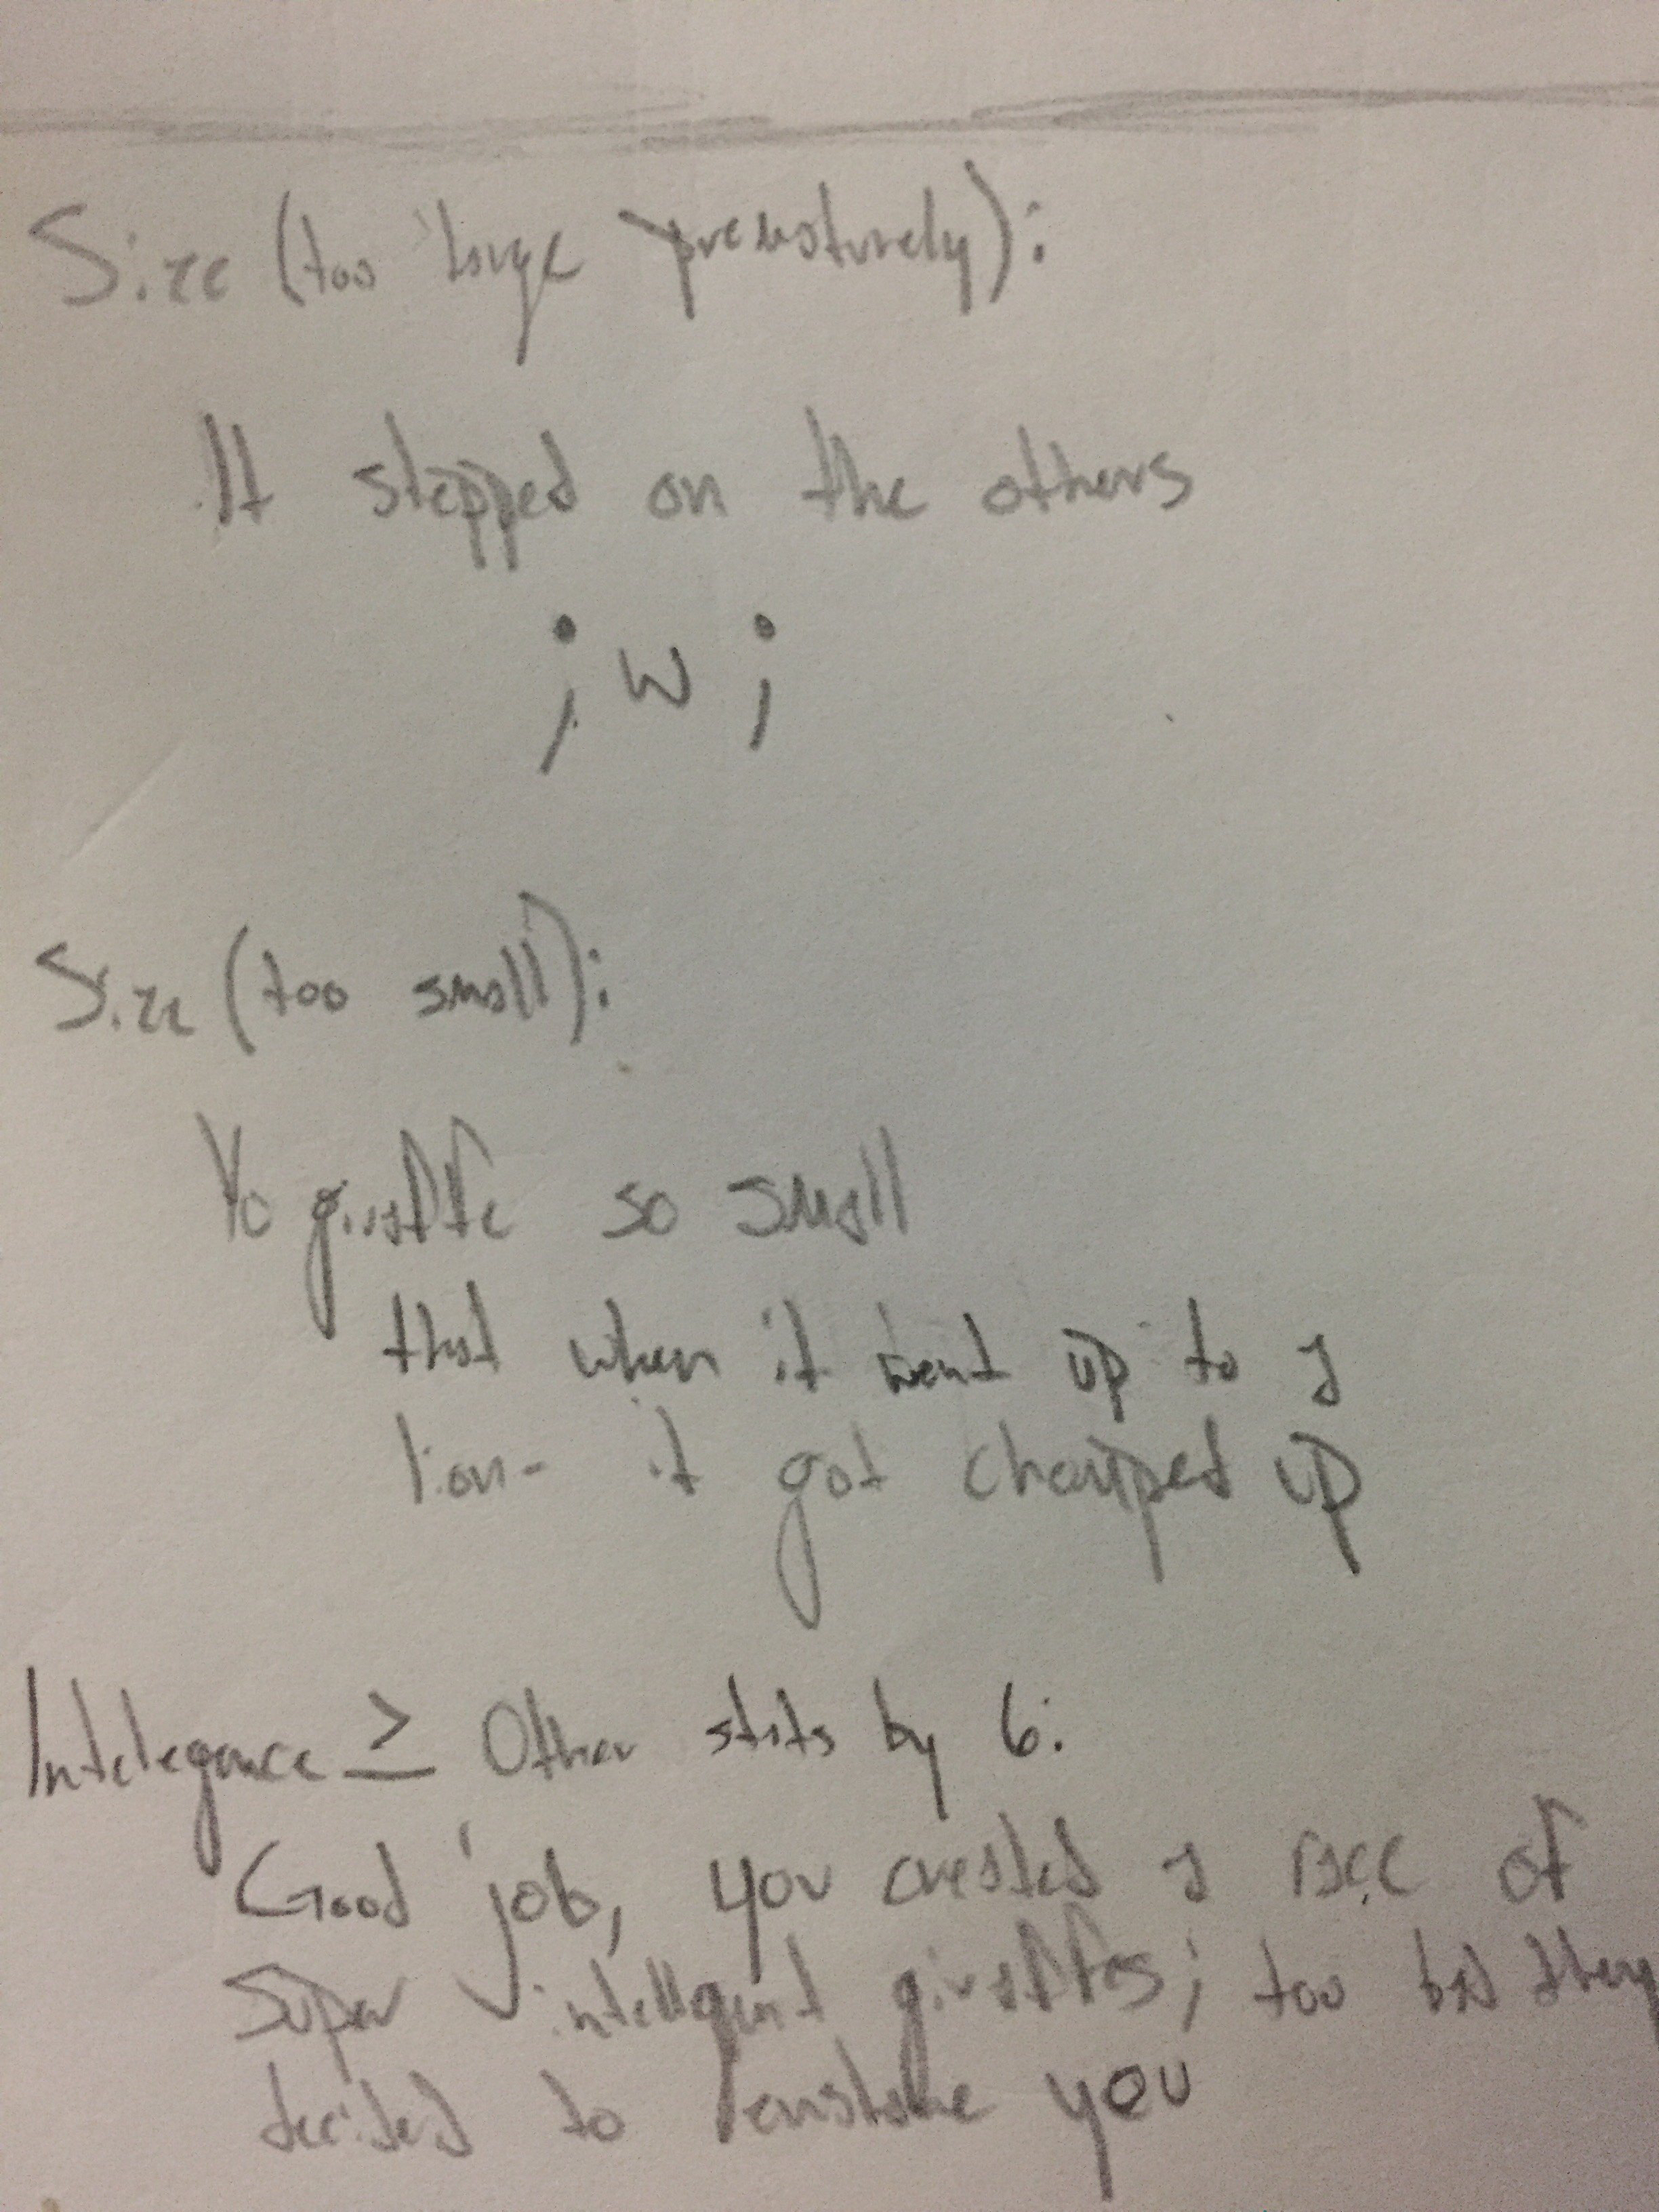 Size (too large prematurely):
It stepped on the others
; w ;
Size (too small):
Yo giraffe so small
that when it went up to a
lion- it got chomped up
Intelegance ≥ Other stats by 6:
Good job, you created a race of
super intellegent giraffes; too bad they
decided to enslave you